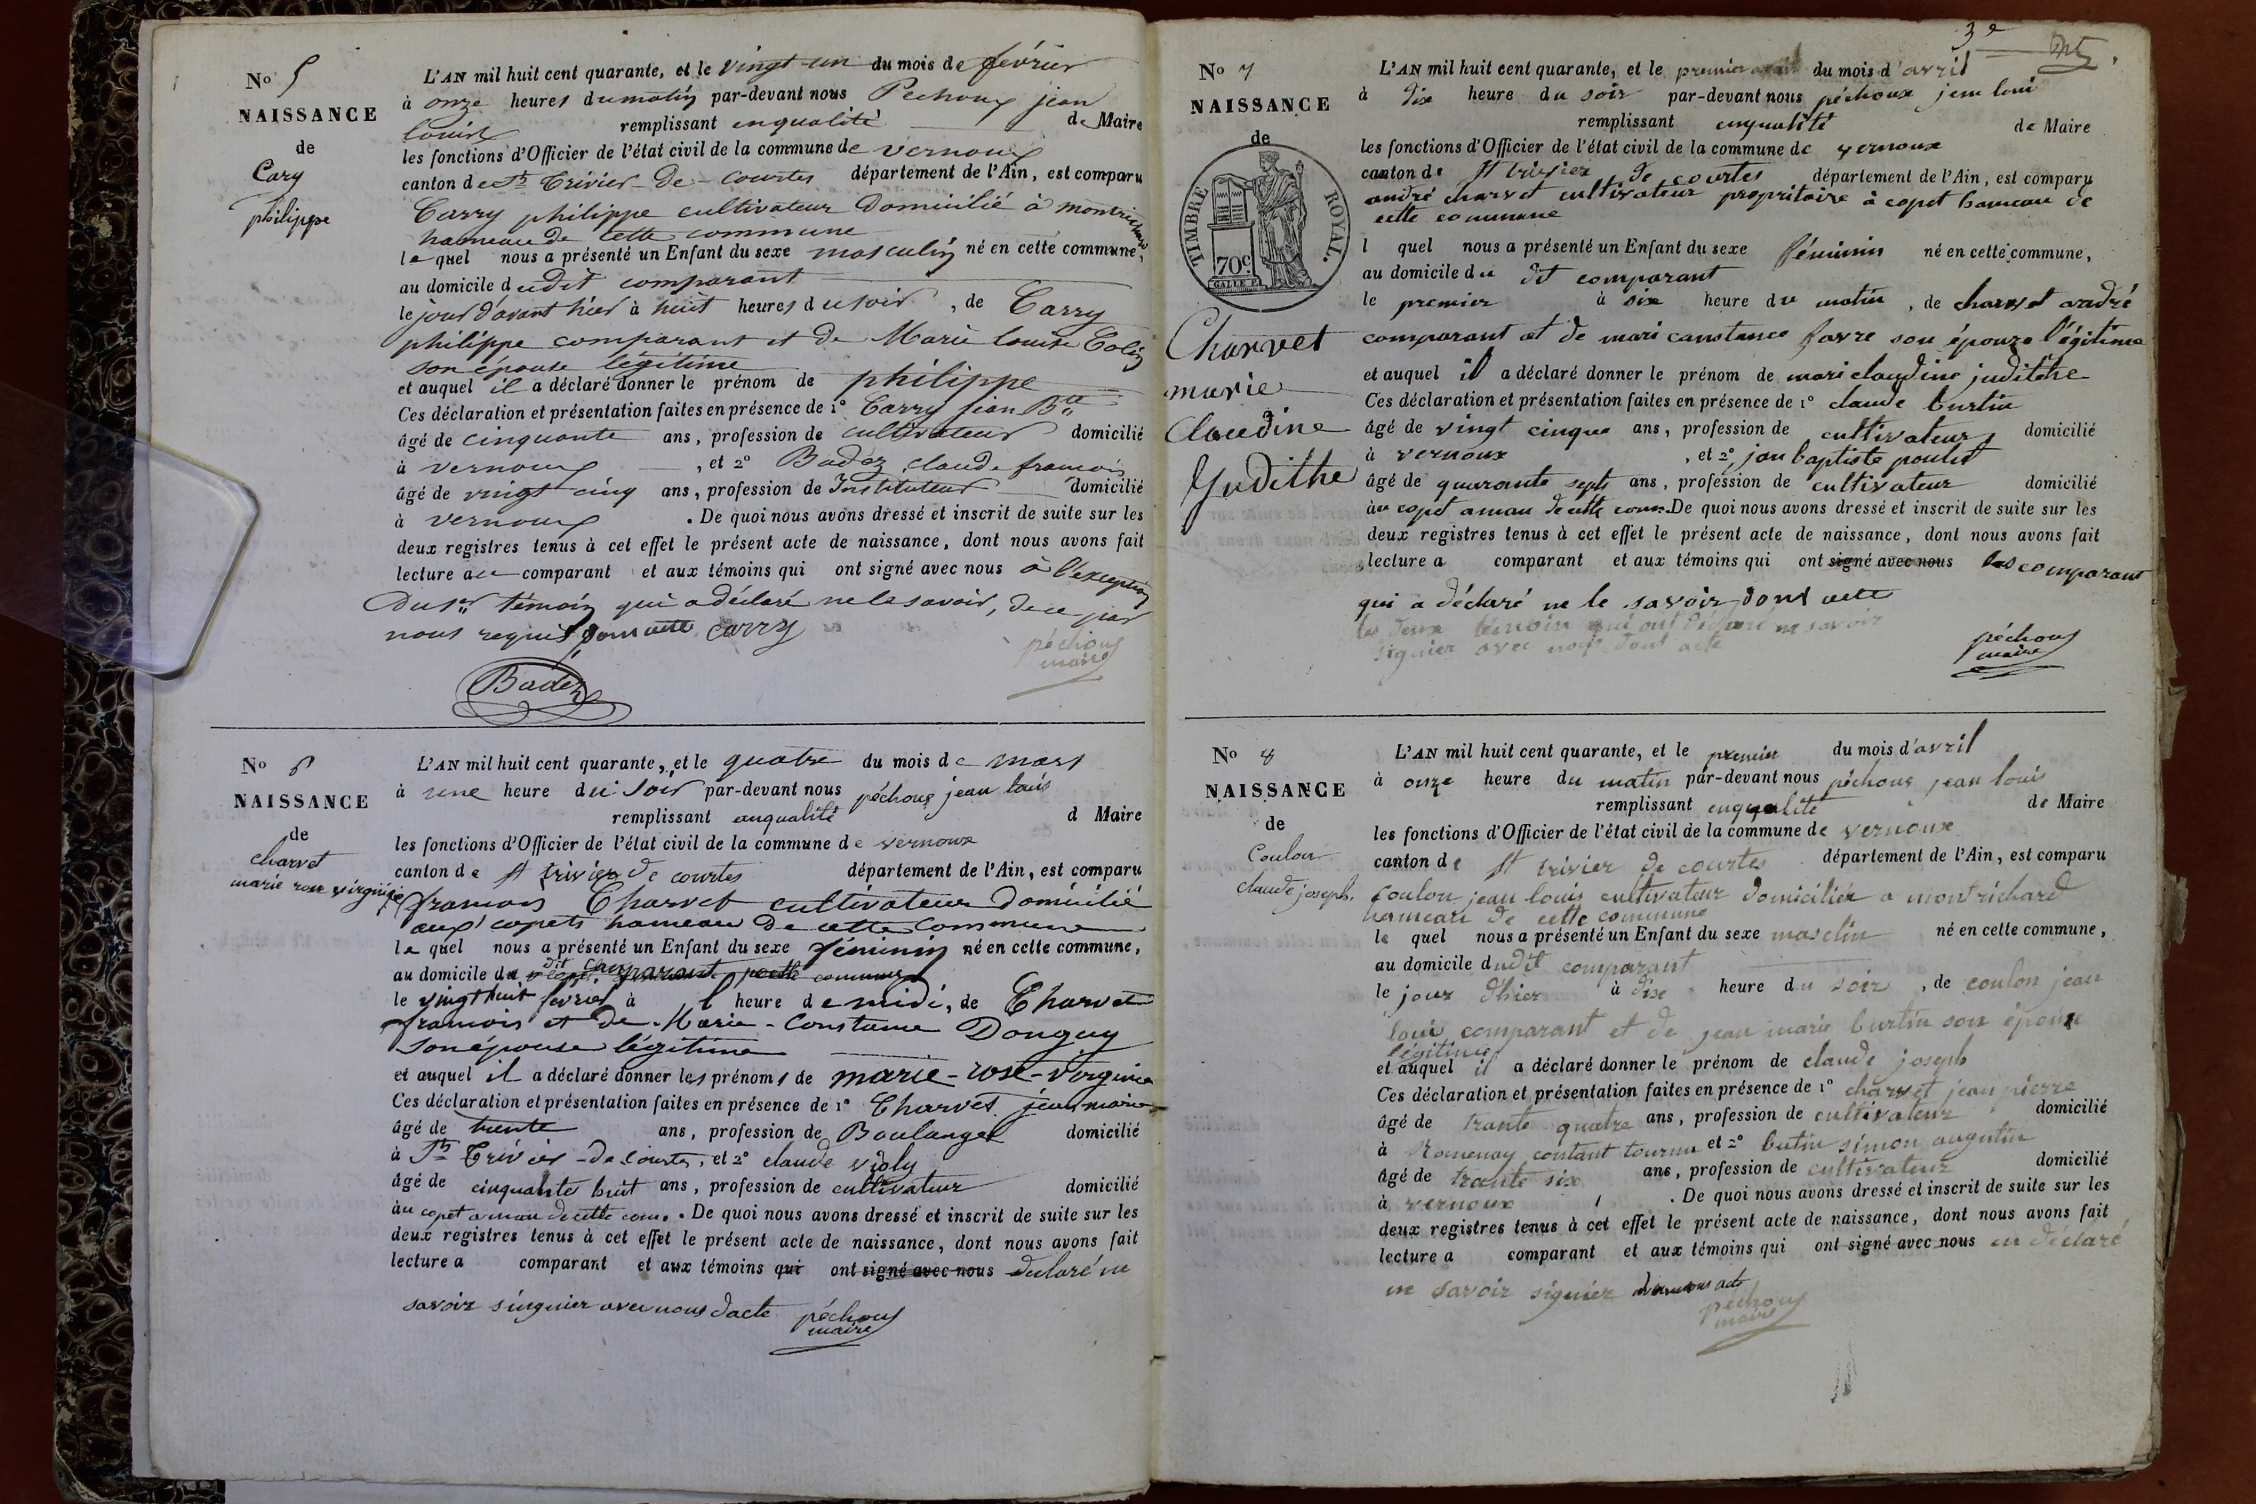 No 5
NAISSANCE
de
Cary
philippe
L'AN mil huit cent quarante, et le vingt-un du mois de février
à onze heures du matin par-devant nous Pechoux jean
louis remplissant enqualité de Maire
les fonctions d'Officier de l'état civil de la commune de vernoux
canton de St Trivier-de-Courtes département de l'Ain, est comparu
Carry philippe cultivateur Domicilié à montrichard
hameau de cette commune
le quel nous a présenté un Enfant du sexe masculin né en cette commune,
au domicile dudit comparant
le jour d'avant hier à huit heures du soir, de Carry
philippe comparant et de Marie louise Colin
son épouse légitime
et auquel il a déclaré donner le prénom de philippe
Ces déclaration et présentation faites en présence de 1° Carry jean Bte
âgé de cinquante ans, profession de cultivateur domicilié
à vernoux, et 2° Badez claude francois
âgé de vingt cinq ans, profession de Instituteur domicilié
à vernoux. De quoi nous avons dressé et inscrit de suite sur les
deux registres tenus à cet effet le présent acte de naissance, dont nous avons fait
lecture au comparant et aux témoins qui ont signé avec nous à l'exception
du 1er témoin qui a déclaré ne le savoir, de ce par
nous requis dont acte carry
péchoux
maire
Badez
No 6
NAISSANCE
de
charvet
marie rose virginie
L'AN mil huit cent quarante, et le quatre du mois de mars
à une heure du soir par-devant nous péchoux jean louis
remplissant enqualité d Maire
les fonctions d'Officier de l'état civil de la commune de vernoux
canton de st trivier de courtes département de l'Ain, est comparu
francois Charvet cultivateur domicilié
aux copets hameau de cette commune
le quel nous a présenté un Enfant du sexe féminin né en cette commune,
au domicile du dit comparant commune
le vingt huit fevrier à l heure de midi, de Charvet
francois et de Marie-Constance Donguy
son épouse légitime
et auquel il a déclaré donner les prénoms de marie-rose-virginie
Ces déclaration et présentation faites en présence de 1° Charvet jean marie
âgé de trente ans, profession de Boulanger domicilié
à St Trivier-de Courtes, et 2° claude violy
âgé de cinquante huit ans, profession de cultivateur domicilié
au copet amau de cette com. De quoi nous avons dressé et inscrit de suite sur les
deux registres tenus à cet effet le présent acte de naissance, dont nous avons fait
lecture a comparant et aux témoins qui ont signé avec nous declaré ne
savoir singnier avec nous dacte péchoux
maire
3e
No 7
NAISSANCE
de
TIMBRE ROYAL.
70c.
Charvet
marie
Claudine
Judithe
L'AN mil huit cent quarante, et le premier du mois d'avril
à dix heure du soir par-devant nous péchoux jean loui
remplissant enqualité de Maire
les fonctions d'Officier de l'état civil de la commune de vernoux
canton de st trivier de courtes département de l'Ain, est comparu
andré charvet cultivateur propritaire à copet hameau de
cette commune
l quel nous a présenté un Enfant du sexe féminin né en cette commune,
au domicile du dit comparant
le premier à six heure du matin, de charvet andré
comparant et de mari canstance favre son épouze légitime
et auquel il a déclaré donner le prénom de mari claudine judithe
Ces déclaration et présentation faites en présence de 1° claude burtin
âgé de vingt cinque ans, profession de cultivateur domicilié
à vernoux, et 2° jan baptiste poulet
âgé de quarante sept ans, profession de cultivateur domicilié
au copet amau de cette com. De quoi nous avons dressé et inscrit de suite sur les
deux registres tenus à cet effet le présent acte de naissance, dont nous avons fait
lecture a comparant et aux témoins qui ont signé avec nous les comparant
qui a déclaré ne le savoir dont acte
les deux témoin qui ont déclaré ne savoir
signier avec nous dont acte
péchoux
maire
No 8
NAISSANCE
de
Coulon
claude joseph.
L'AN mil huit cent quarante, et le premier du mois d'avril
à onze heure du matin par-devant nous péchoux jean louis
remplissant enqualité de Maire
les fonctions d'Officier de l'état civil de la commune de vernoux
canton de st trivier de courtes département de l'Ain, est comparu
coulon jean louis cultivateur domicilier a montrichard
hameau de cette commune
le quel nous a présenté un Enfant du sexe masclin né en cette commune,
au domicile dudit comparant
le jour dhier à dix heure du soir, de coulon jean
loui comparant et de jean marie burtin son épouse
légitime
et auquel il a déclaré donner le prénom de claude joseph
Ces déclaration et présentation faites en présence de 1° charvet jean pierre
âgé de trante quatre ans, profession de cultivateur domicilié
à Romenay contant tournu et 2° butin simon augustin
âgé de trante six ans, profession de cultivateur domicilié
à vernoux. De quoi nous avons dressé et inscrit de suite sur les
deux registres tenus à cet effet le présent acte de naissance, dont nous avons fait
lecture a comparant et aux témoins qui ont signé avec nous on déclaré
ne savoir signier acte
péchoux
maire